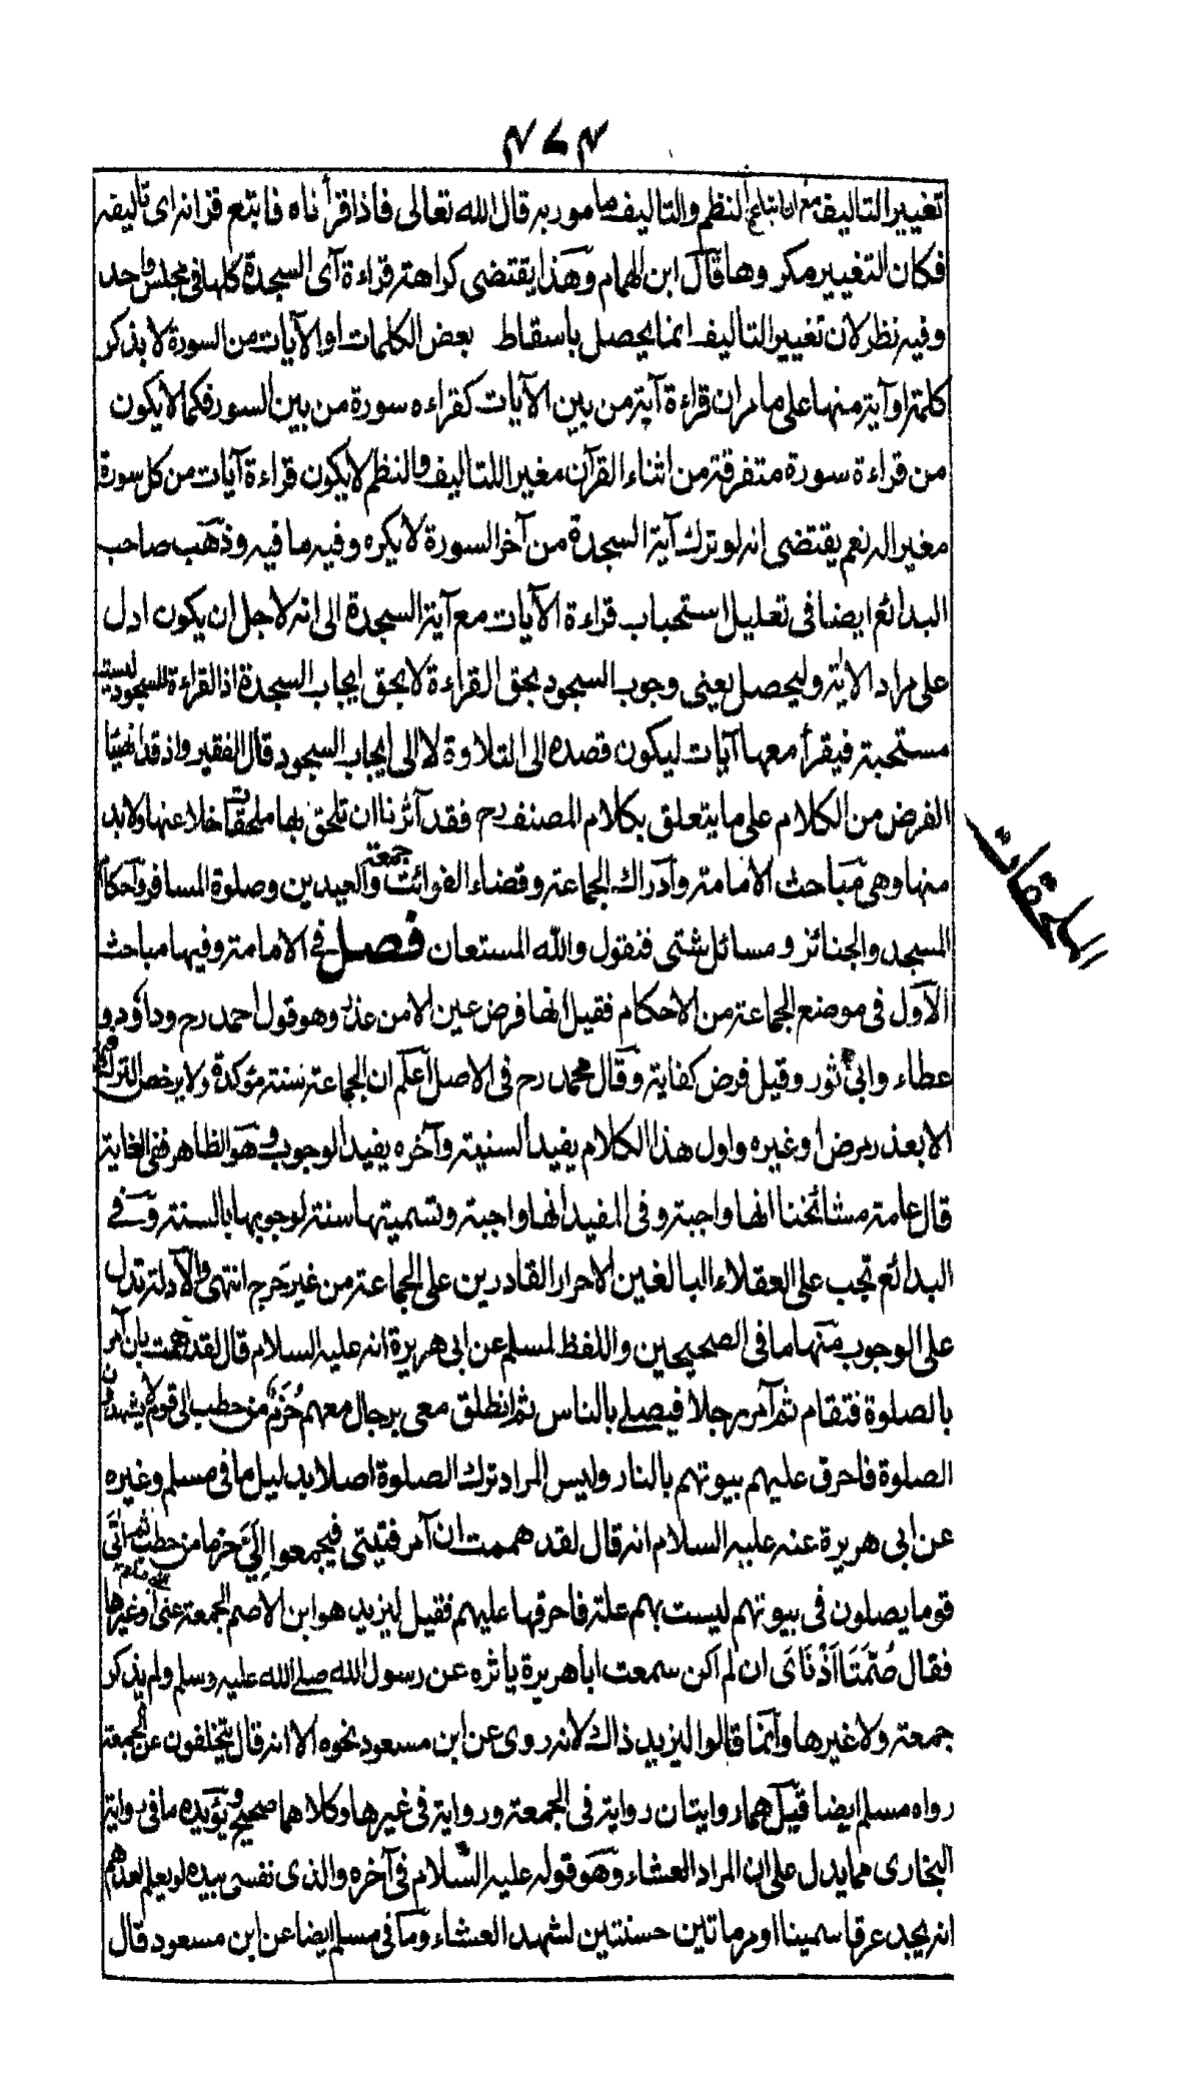 ٤٧٤
تغيير التاليف مع ان اتباع النظم والتاليف مامور به قال الله تعالى فاذا قرأناه فاتبع قرانه اى تاليفه
فكان التغيير مكروها قال ابن الهمام وهذا يقتضى كراهة قراءة آى السجدة كلها فى مجلس واحد
وفيه نظر لان تغيير التاليف انما يحصل باسقاط بعض الكلمات او الآيات من السورة لا بذكر
كلمة او آية منها على ما مر ان قراءة آية من بين الآيات كقراءه سورة من بين السور فكما لا يكون
من قراءة سورة متفرقة من اثناء القرآن مغير اللتاليف والنظم لا يكون قراءة آيات من كل سورة
مغير اله نعم يقتضى انه لو ترك آية السجدة من آخر السورة لا يكره وفيه ما فيه وذهب صاحب
البدائع ايضا فى تعليل استحباب قراءة الآيات مع آية السجدة الى انه لاجل ان يكون ادل
على مراد الاية وليحصل يعنى وجوب السجود بحق القراءة لا بحق ايجاب السجدة اذ القراءة للسجود ليست
مستحبة فيقرأ معها آيات ليكون قصده الى التلاوة لا الى ايجاب السجود قال الفقير واذ قد انهينا
الغرض من الكلام على ما يتعلق بكلام المصنف رح فقد آثرنا ان نلحق بها ملحقات خلا عنها ولا بد
منها وهى مباحث الامامة وادراك الجماعة وقضاء الفوائت والجمعة والعيدين وصلوة المسافر واحكام
المسجد والجنائز ومسائل شتى فنقول والله المستعان فصل فى الامامة وفيها مباحث
الملحقات
الاول فى موضع الجماعة من الاحكام فقيل انها فرض عين الا من عذر وهو قول احمد رح وداؤد و
عطاء وابى ثور وقيل فرض كفاية وقال محمد رح فى الاصل اعلم ان الجماعة سنة مؤكدة ولا يرخص الترك فيها
الا بعذر مرض او غيره واول هذا الكلام يفيد السنية وآخره يفيد الوجوب وهو الظاهر ففى الغاية
قال عامة مشائخنا انها واجبة وفى المفيد انها واجبة وتسميتها سنة لوجوبها بالسنة وفى
البدائع تجب على العقلاء البالغين الاحرار القادرين على الجماعة من غير حرج انتهى والادلة تدل
على الوجوب منها ما فى الصحيحين واللفظ لمسلم عن ابى هريرة انه عليه السلام قال لقد هممت بان آمر
بالصلوة فتقام ثم آمر رجلا فيصلى بالناس ثم انطلق معى برجال معهم حُزَم من حطب الى قوم لا يشهدون
الصلوة فاحرق عليهم بيوتهم بالنار وليس المراد ترك الصلوة اصلا بدليل ما فى مسلم وغيره
عن ابى هريرة عنه عليه السلام انه قال لقد هممت ان آمر فتيتى فيجمعوا الىّ حزما من حطب ثم اتى
قوما يصلون فى بيوتهم ليست بهم علة فاحرقها عليهم فقيل ليزيد هو ابن الاصم الجمعة عنى او غيرها
فقال صُمّتَا اُذْنَاىَ ان لم اكن سمعت ابا هريرة ياثره عن رسول الله صلى الله عليه وسلم ولم يذكر
جمعة ولا غيرها وانما قالوا ليزيد ذاك لانه روى عن ابن مسعود نحوه الا انه قال يتخلفون عن الجمعة
رواه مسلم ايضا قيل هما روايتان رواية فى الجمعة ورواية فى غيرها وكلاهما صحيح ويؤيده ما فى رواية
البخارى مما يدل على ان المراد العشاء وهو قوله عليه السلام فى آخره والذى نفسى بيده لو يعلم احدهم
انه يجد عرقا سمينا او مرماتين حسنتين لشهد العشاء وما فى مسلم ايضا عن ابن مسعود قال